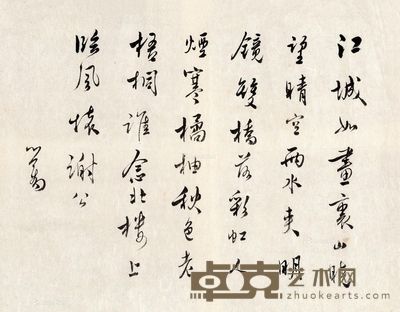 江城如畫裏山晚
望晴空兩水夾明
鏡雙橋落彩虹人
煙寒橘柚秋色老
梧桐誰念北樓上
臨風懷謝公
心畬
卓克艺术网
zhuokearts.com